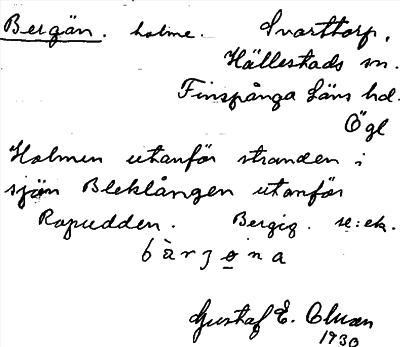 Bergön. holme. Svarttorp,
Hällestads sn.
Finspånga Läns hd.
Ögl
Holmen utanför stranden i
sjön Bleklången utanför
Rapudden. Bergig. se: ek.
bàrʒọ̀na
Gustaf E.
1930